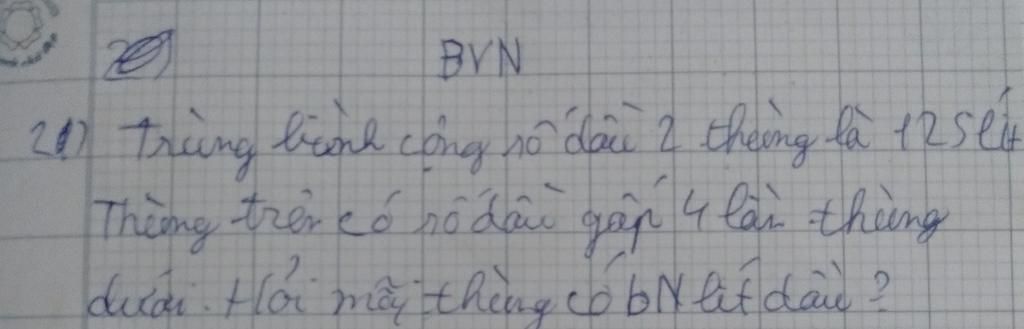 BVN
21) Trung bình cộng số dầu 2 thùng là 125 lít
Thùng trên có số dầu gấp 4 lần thùng
dưới. Hỏi mỗi thùng có bN lít dầu?